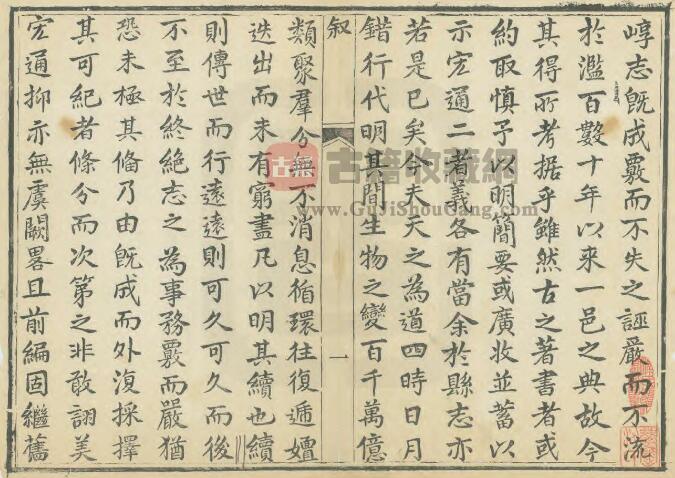 崞志既成覈而不失之誣嚴而不流
於濫百數十年以來一邑之典故今
其得所考据乎雖然古之著書者或
約取慎予以明簡要或廣收並蓄以
示宏通二者義各有當余於縣志亦
若是已矣今夫天之為道四時日月
錯行代明其間生物之變百千萬億
叙 一
類聚羣分無不消息循環往復遞嬗
迭出而未有窮盡凡以明其續也續
則傳世而行遠遠則可久可久而後
不至於終絕志之為事務覈而嚴猶
恐未極其俻乃由既成而外復採擇
其可紀者條分而次第之非敢詡美
宏通抑亦無虞闕畧且前編固繼舊
古籍收藏網
www.GuJiShouCang.com